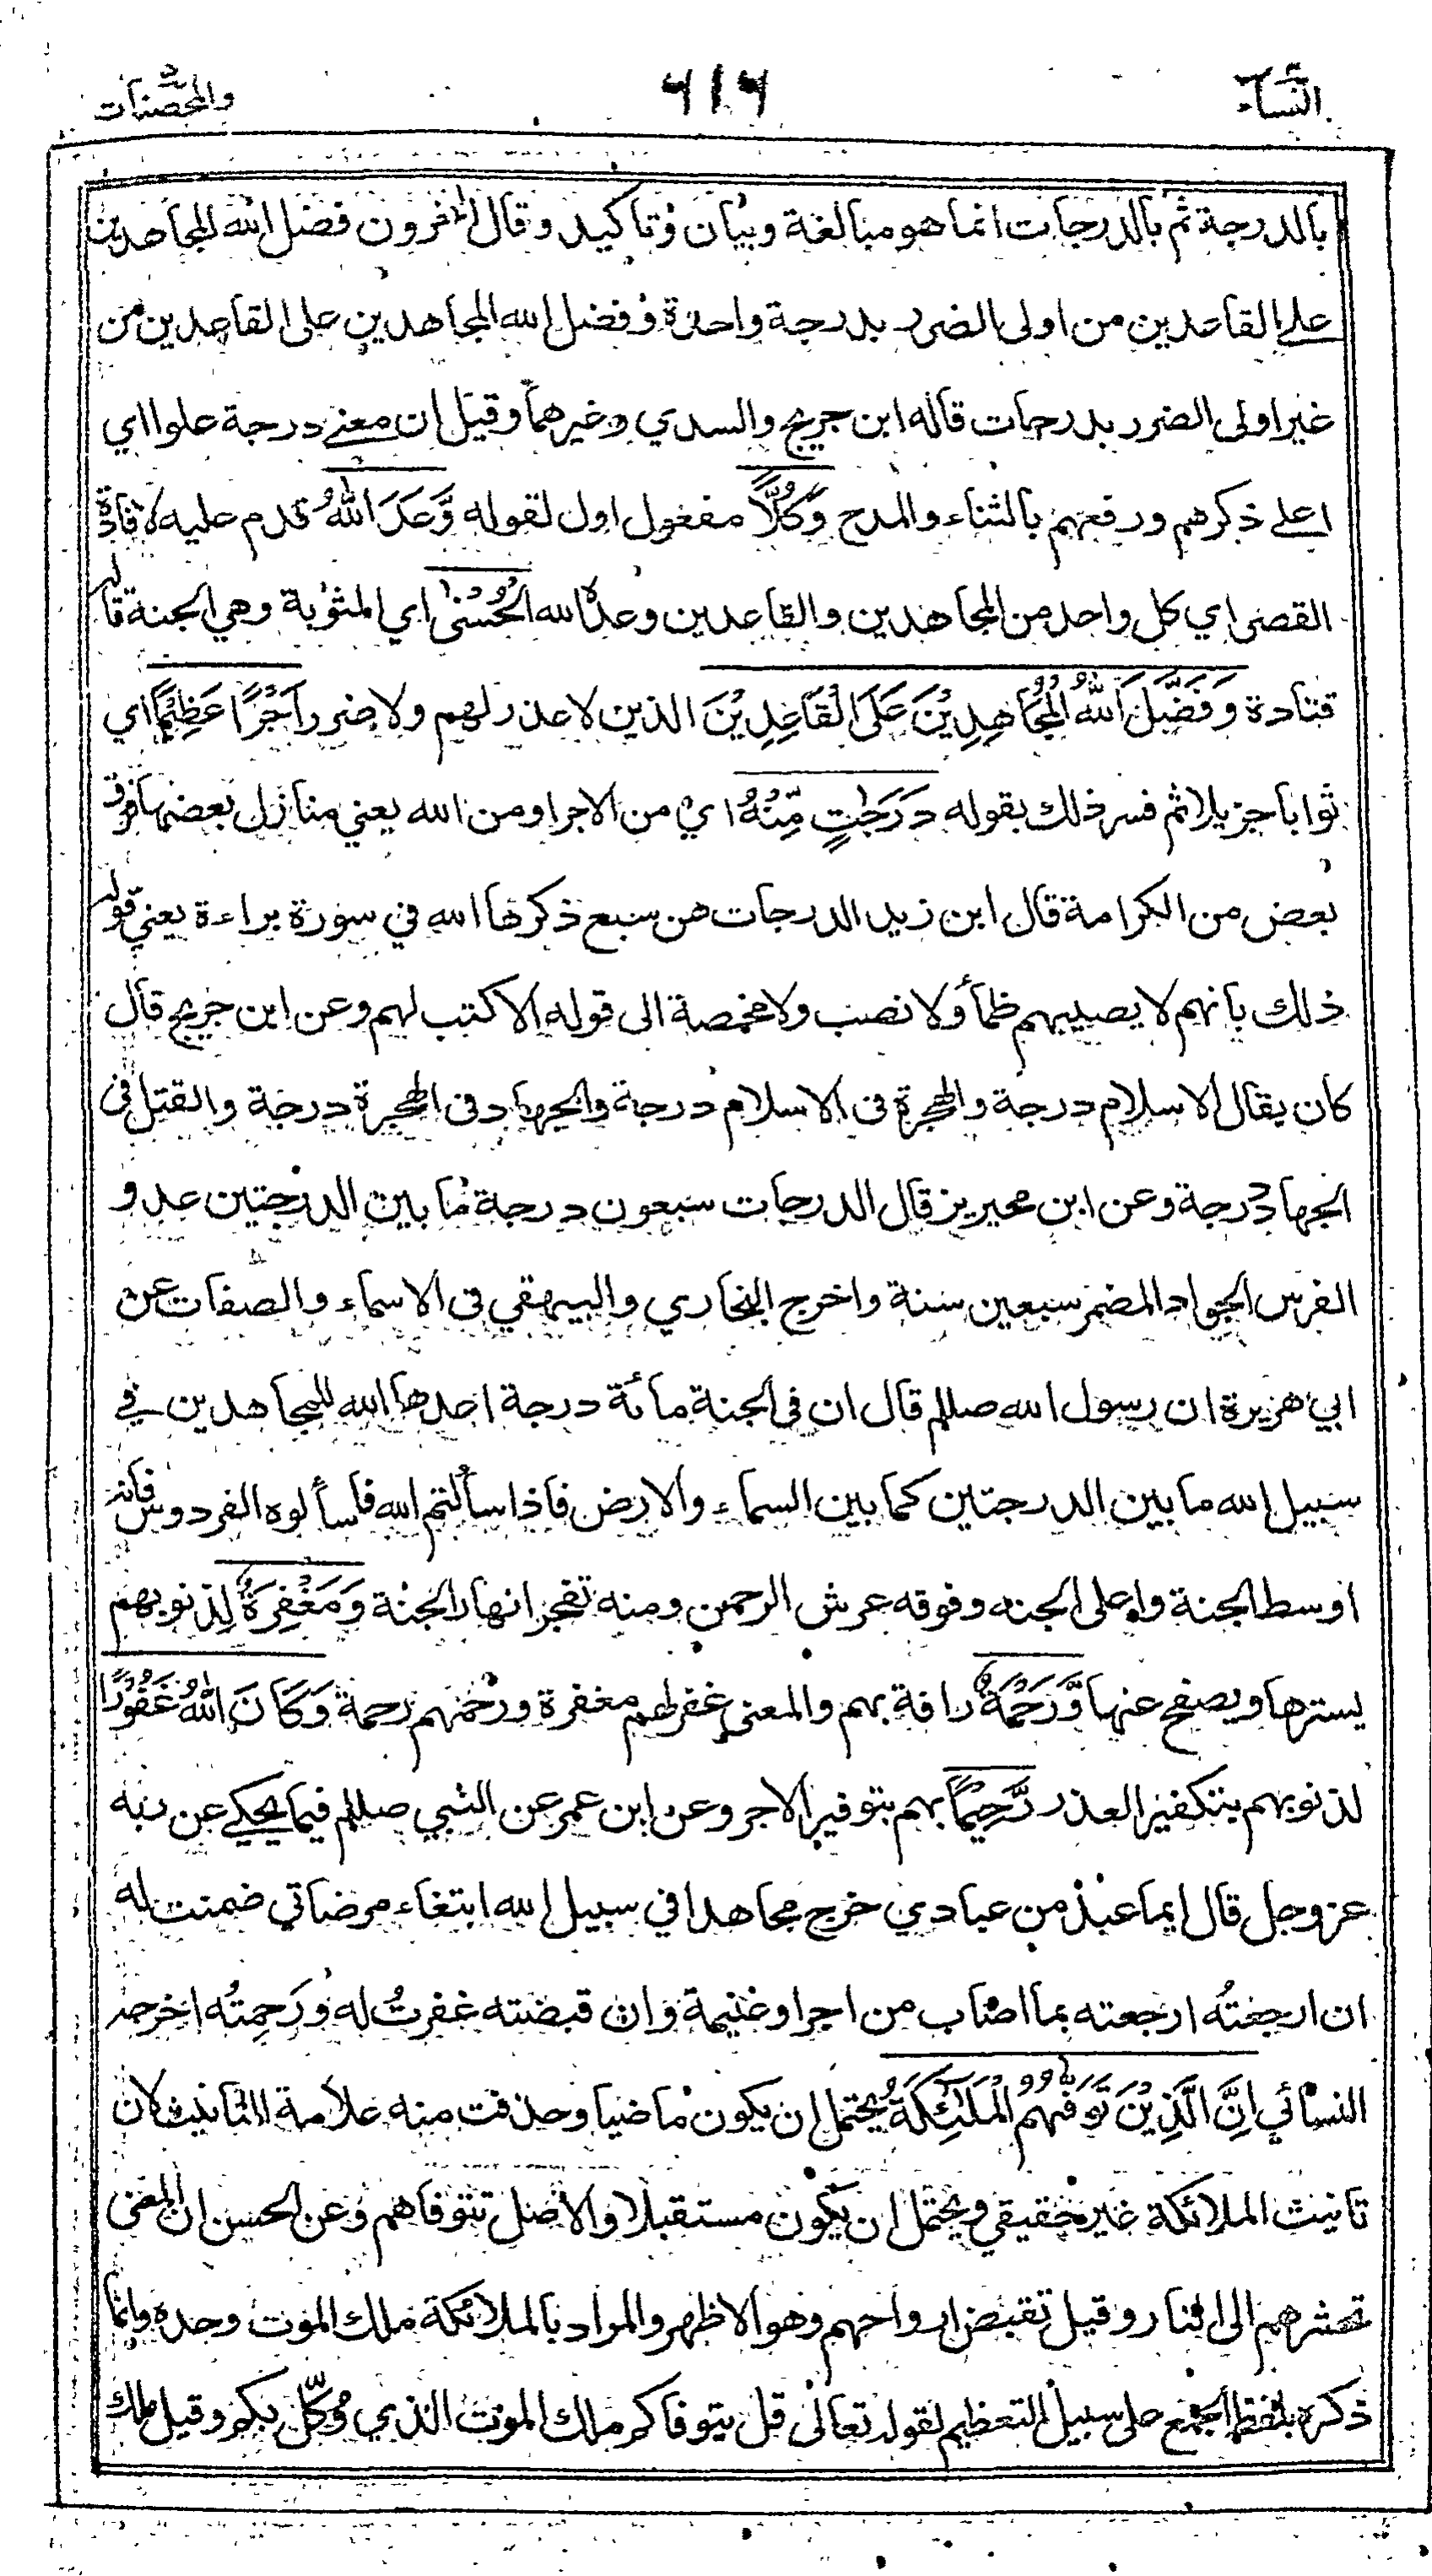 النساء ٦١٦ والمحصنات
بالدرجة ثم بالدرجات انما هو مبالغة وبيان وتاكيد وقال اخرون فضل الله المجاهدين
على القاعدين من اولى الضرر بدرجة واحدة وفضل الله المجاهدين على القاعدين من
غير اولى الضرر بدرجات قاله ابن جريج والسدي وغيرهما وقيل ان معنى درجة علوا اي
اعلى ذكرهم ورفعهم بالثناء والمدح وَكُلًّا مفعول اول لقوله وَّعَدَ اللهُ قدم عليه لافادة
القصر اي كل واحد من المجاهدين والقاعدين وعده الله الْحُسْنٰى اي المثوبة وهي الجنة قاله
قتادة وَفَضَّلَ اللهُ الْمُجَاهِدِيْنَ عَلَى الْقَاعِدِيْنَ الذين لا عذر لهم ولا ضرر اَجْرًا عَظِيْمًا اي
ثوابا جزيلا ثم فسر ذلك بقوله دَرَجٰتٍ مِّنْهُ اي من الاجر او من الله يعني منازل بعضها فوق
بعض من الكرامة قال ابن زيد الدرجات هن سبع ذكرها الله في سورة براءة يعني قوله
ذلك بانهم لا يصيبهم ظمأ ولا نصب ولا مخمصة الى قوله الا كتب لهم وعن ابن جريج قال
كان يقال الاسلام درجة والهجرة فى الاسلام درجة والجهاد فى الهجرة درجة والقتل فى
الجهاد درجة وعن ابن محيريز قال الدرجات سبعون درجة ما بين الدرجتين عدو
الفرس الجواد المضمر سبعين سنة واخرج البخاري والبيهقي فى الاسماء والصفات عن
ابي هريرة ان رسول الله صللم قال ان فى الجنة مائة درجة اعدها الله للمجاهدين في
سبيل الله ما بين الدرجتين كما بين السماء والارض فاذا سألتم الله فاسألوه الفردوس فانه
اوسط الجنة واعلى الجنه وفوقه عرش الرحمن ومنه تفجر انهار الجنة وَمَغْفِرَةً لذنوبهم
يسترها ويصفح عنها وَّرَحْمَةً رافة بهم والمعنى غفر لهم مغفرة ورحمهم رحمة وَكَانَ اللهُ غَفُوْرًا
لذنوبهم بتكفير العذر رَّحِيْمًا بهم بتوفير الاجر وعن ابن عمر عن النبي صللم فيما يحكي عن ربه
عز وجل قال ايما عبد من عبادي خرج مجاهدا في سبيل الله ابتغاء مرضاتي ضمنت له
ان ارجعتُه ارجعته بما اصاب من اجر او غنيمة وان قبضته غفرتُ له ورَحِمتُه اخرجه
النسائي اِنَّ الَّذِيْنَ تَوَفّٰهُمُ الْمَلٰٓئِكَةُ يحتمل ان يكون ماضيا وحذفت منه علامة التانيث لان
تانيث الملائكة غير حقيقي ويحتمل ان يكون مستقبلا والاصل تتوفاهم وعن الحسن ان المعنى
تحشرهم الى النار وقيل تقبض ارواحهم وهو الاظهر والمراد بالملائكة ملك الموت وحده وانما
ذكره بلفظ الجمع على سبيل التعظيم لقوله تعالى قل يتوفاكم ملك الموت الذي وُكّل بكم وقيل ملك